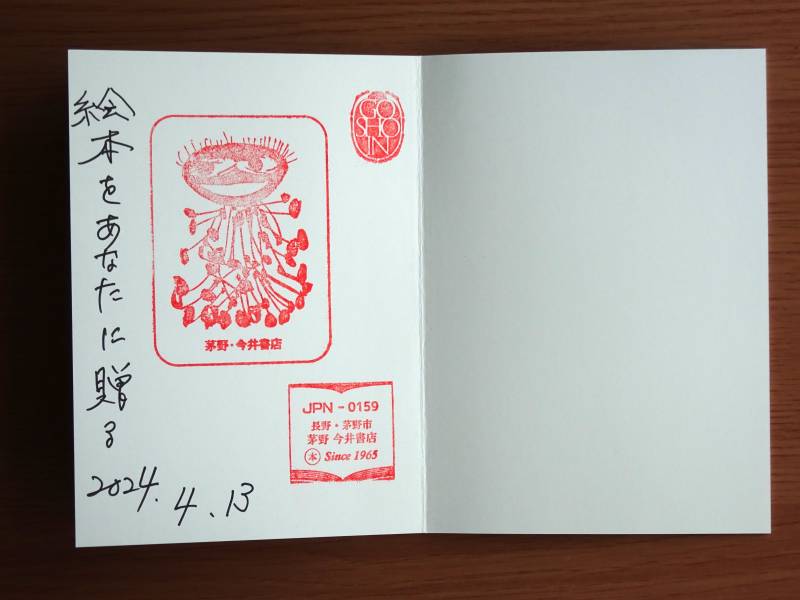 絵本をあなたに贈る
2024.4.13
GO
SHO
IN
茅野・今井書店
JPN-0159
長野・茅野市
茅野 今井書店
本 Since 1965